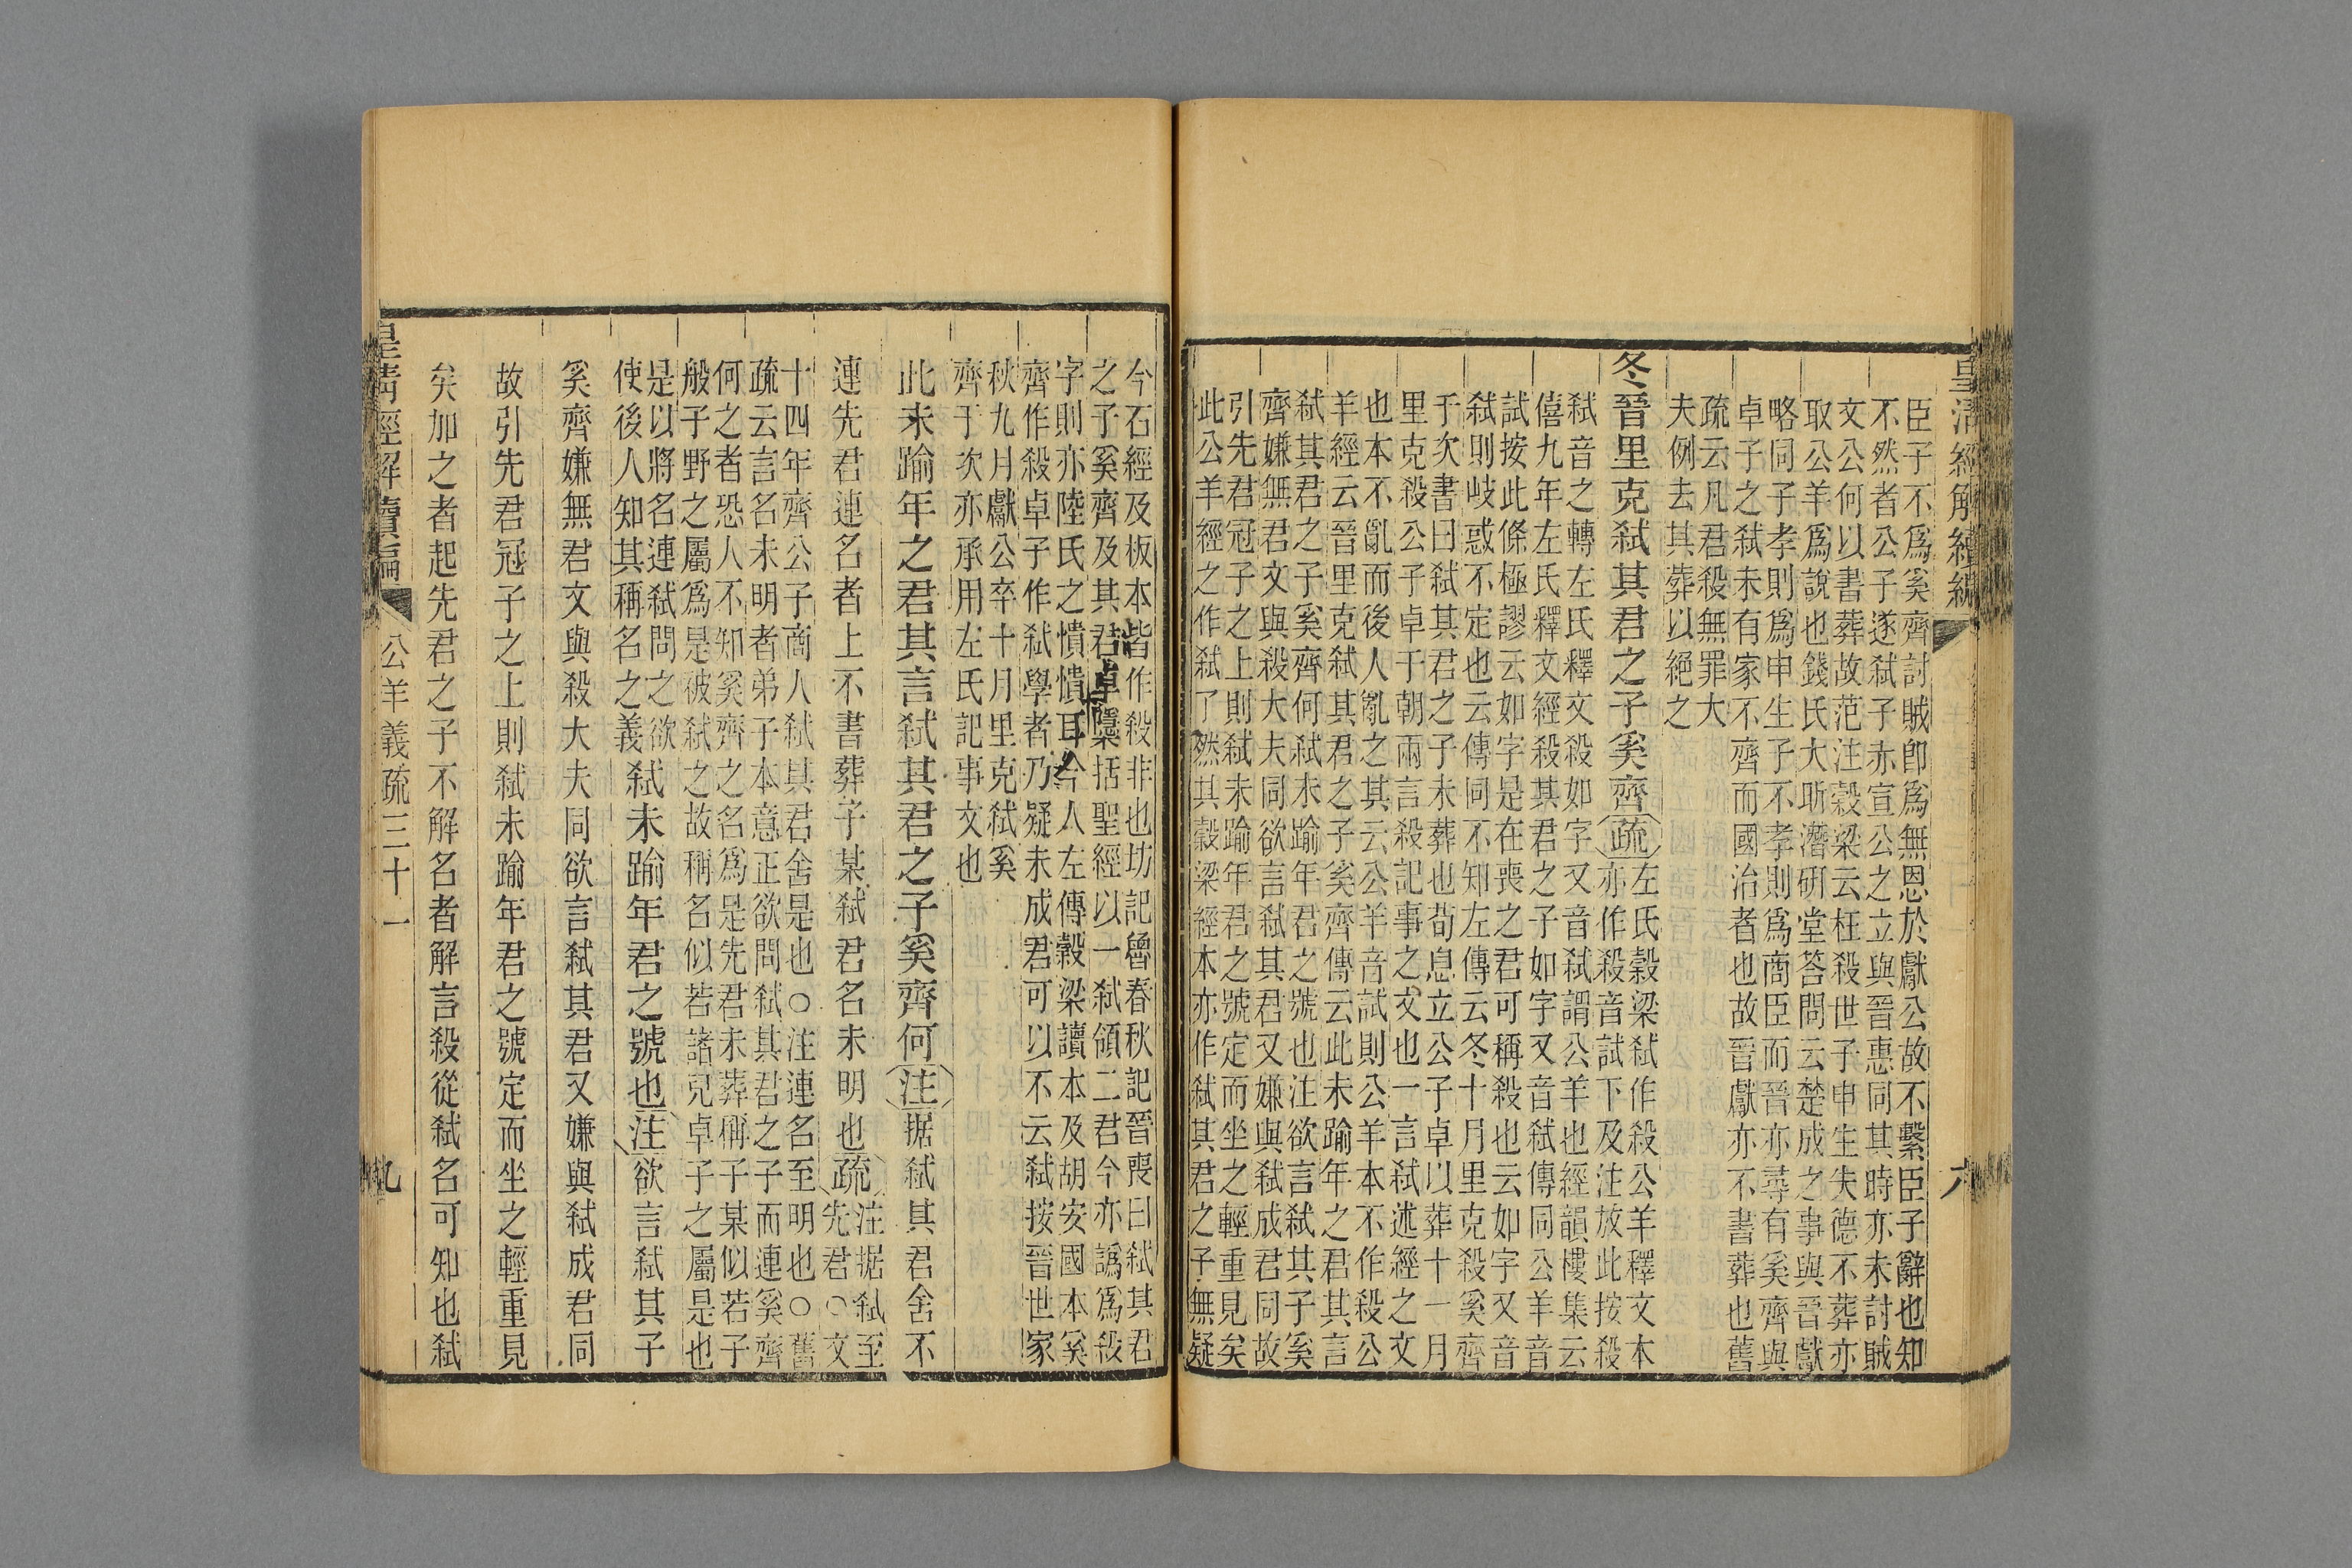 皇清經解續編
臣子不爲奚齊討賊卽爲無恩於獻公故不繫臣子辭也知
不然者公子遂弑子赤宣公之立與晉惠同其時亦未討賊
文公何以書葬故范注穀梁云枉殺世子申生失德不葬亦
取公羊爲說也錢氏大昕潛研堂荅問云楚成之事與晉獻
略同子孝則爲申生子不孝則爲商臣而晉亦尋有奚齊與
卓子之弑未有家不齊而國治者也故晉獻亦不書葬也舊
疏云凡君殺無罪大
夫例去其葬以絕之
冬晉里克弑其君之子奚齊疏左氏穀梁弑作殺公羊釋文本
亦作殺音試下及注放此按殺
弑音之轉左氏釋文殺如字又音弑謂公羊也經韻樓集云
僖九年左氏釋文經殺其君之子如字又音弑傳同公羊音
試按此條極謬云如字是在喪之君可稱殺也云如字又音
弑則岐惑不定也云傳同不知左傳云冬十月里克殺奚齊
于次書曰弑其君之子未葬也荀息立公子卓以葬十一月
里克殺公子卓于朝兩言殺記事之文也一言弑述經之文
也本不亂而後人亂之其云公羊音試則公羊本不作殺公
羊經云晉里克弑其君之子奚齊傳云此未踰年之君其言
弑其君之子奚齊何弑未踰年君之號也注欲言弑其子奚
齊嫌無君文與殺大夫同欲言弑其君又嫌與弑成君同故
引先君冠子之上則弑未踰年君之號定而坐之輕重見矣
此公羊經之作弑了然其穀梁經本亦作弑其君之子無疑
今石經及板本皆作殺非也坊記魯春秋記晉喪曰弑其君
之子奚齊及其君卓隱括聖經以一弑領二君今亦譌爲殺
字則亦陸氏之憒憒耳今人左傳穀梁讀本及胡安國本奚
齊作殺卓子作弑學者乃疑未成君可以不云弑按晉世家
秋九月獻公卒十月里克弑奚
齊于次亦承用左氏記事文也
此未踰年之君其言弑其君之子奚齊何注据弑其君舍不
連先君連名者上不書葬子某弑君名未明也疏注据弑至
先君○文
十四年齊公子商人弑其君舍是也○注連名至明也○舊
疏云言名未明者弟子本意正欲問弑其君之子而連奚齊
何之者恐人不知奚齊之名爲是先君未葬稱子某似若子
般子野之屬爲是被弑之故稱名似若諸兒卓子之屬是也
是以將名連弑問之欲
使後人知其稱名之義弑未踰年君之號也注欲言弑其子
奚齊嫌無君文與殺大夫同欲言弑其君又嫌與弑成君同
故引先君冠子之上則弑未踰年君之號定而坐之輕重見
矣加之者起先君之子不解名者解言殺從弑名可知也弑
皇清經解續編 公羊義疏三十一 九